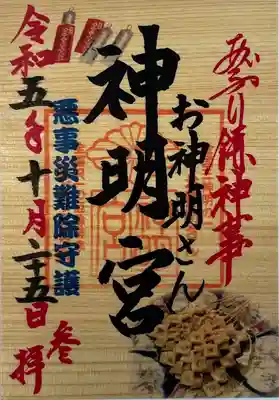 祭り保神事
お神明さん
神明宮
悪事災難除守護
令和五年十月二十五日参拝